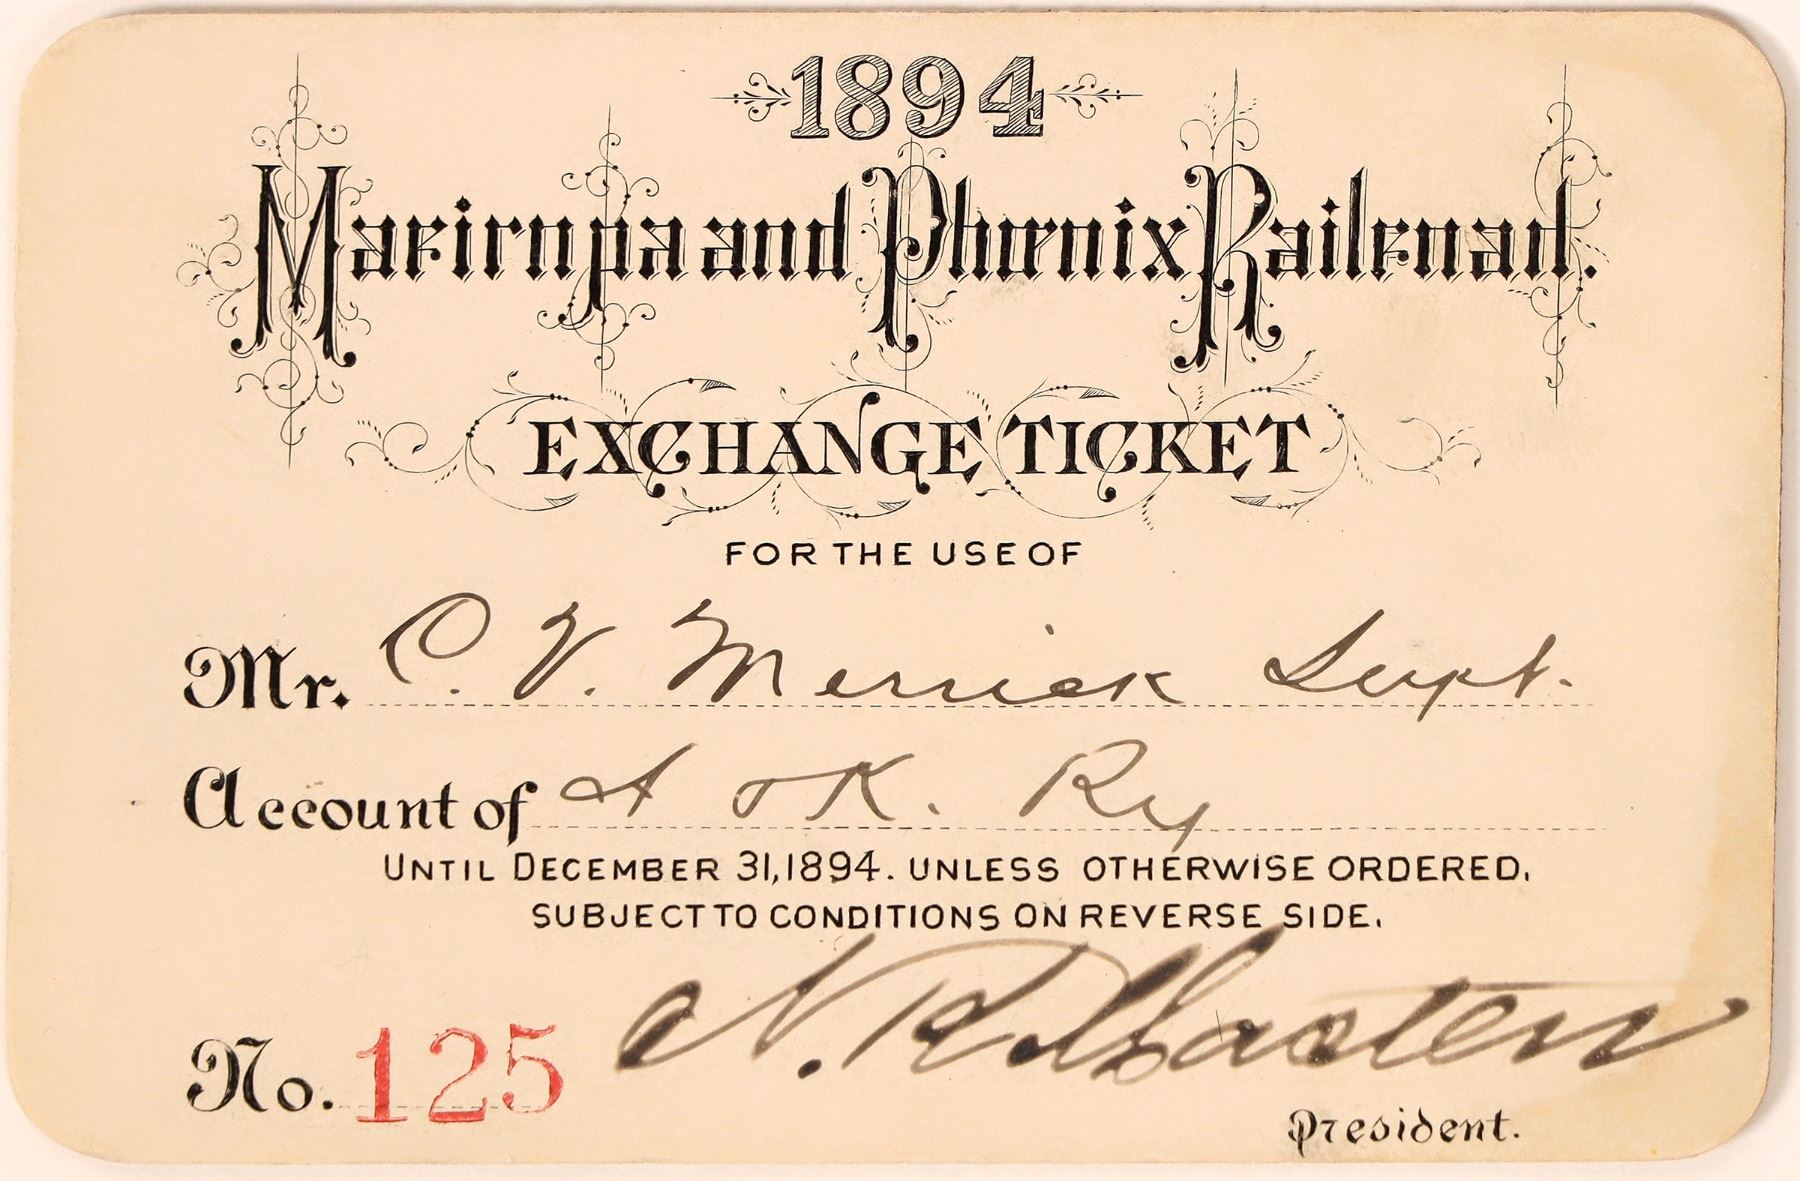 1894
Maricopa and Phœnix Railroad.
EXCHANGE TICKET
FOR THE USE OF
Mr. C. V. Merrick Supt.
Account of K. Ry
UNTIL DECEMBER 31, 1894. UNLESS OTHERWISE ORDERED,
SUBJECT TO CONDITIONS ON REVERSE SIDE.
No. 125 N. K. Masten
President.